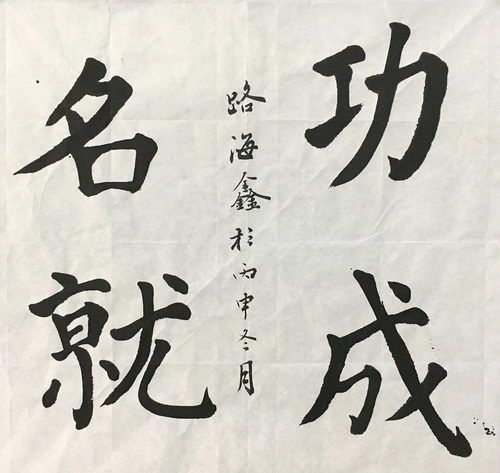 功成
名就
路海鑫於丙申冬月